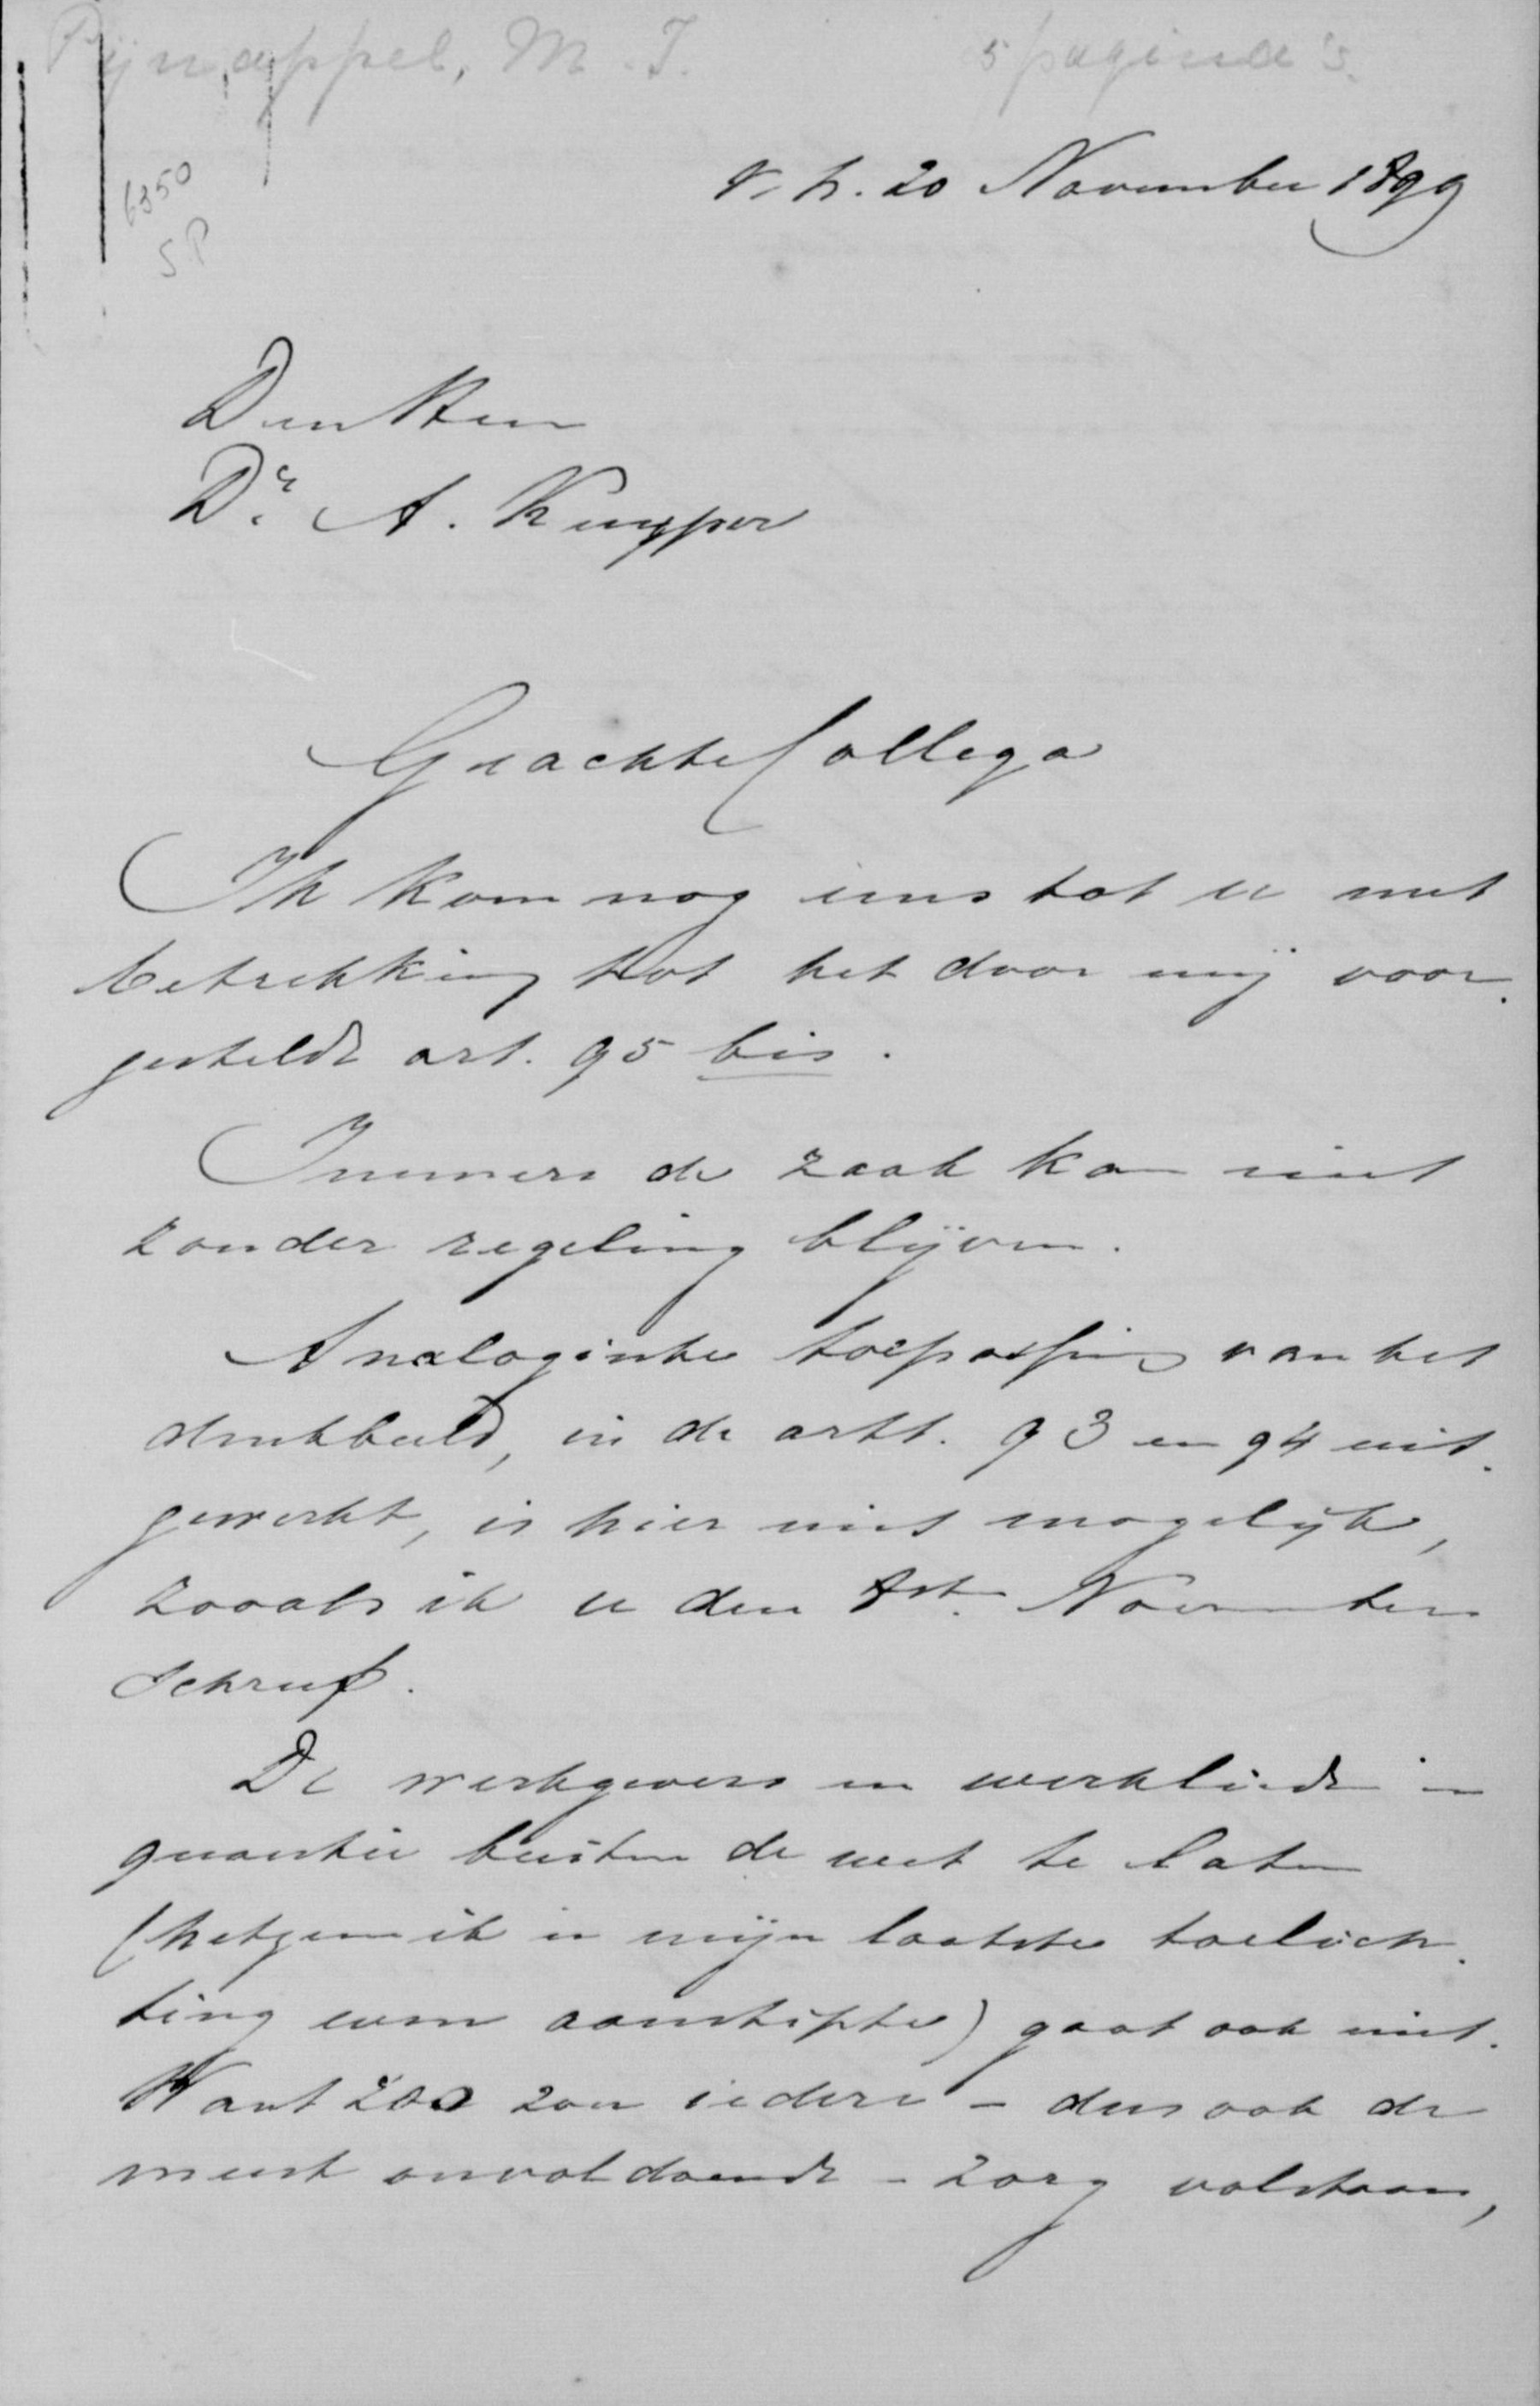 Pijnappel, M. J. 5 pagina's.
6350
5 P
v. h. 20 November 1899
Den Heer
Dr. A. Kuyper
Geachte Collega
Ik kom nog eens tot u met
betrekking tot het door mij voor-
gestelde art. 95 bis.
Immers de zaak kan niet
zonder regeling blijven.
Analogische toepassing van het
denkbeeld, in de artt. 93 en 94 uit-
gewerkt, is hier niet mogelijk,
zooals ik u den 8st. November
schreef.
De werkgevers en werklieden in
quaestie buiten de wet te laten
(hetgeen ik in mijn laatste toelich-
ting even aanstipte) gaat ook niet.
Want zoo zou iedere - dus ook de
meest onvoldoende - zorg volstaan,